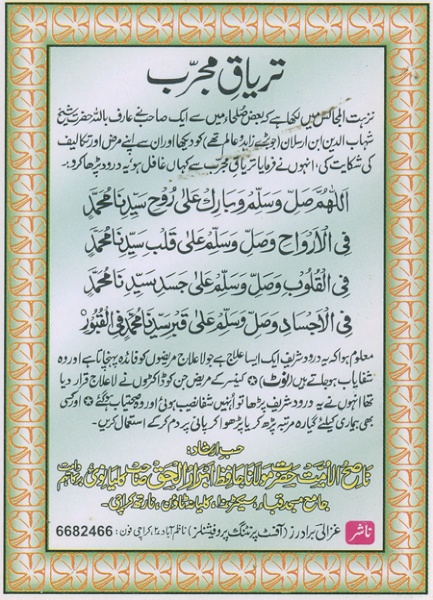 تریاقِ مجرّب
نزہت المجالس میں لکھا ہے کہ بعض صلحاء میں سے ایک صاحب نے عارف باللہ حضرت شیخ
شہاب الدین ابن ارسلان (جو بڑے زاہد و عالم تھے) کو دیکھا اور ان سے اپنے مرض اور تکالیف
کی شکایت کی، انہوں نے فرمایا تریاقِ مجرب سے کہاں غافل ہو یہ درود پڑھا کرو:-
اَللّٰهُمَّ صَلِّ وَسَلِّمْ وَبَارِكْ عَلٰى رُوْحِ سَيِّدِنَا مُحَمَّدٍ
فِي الْاَرْوَاحِ وَصَلِّ وَسَلِّمْ عَلٰى قَلْبِ سَيِّدِنَا مُحَمَّدٍ
فِي الْقُلُوْبِ وَصَلِّ وَسَلِّمْ عَلٰى جَسَدِ سَيِّدِنَا مُحَمَّدٍ
فِي الْاَجْسَادِ وَصَلِّ وَسَلِّمْ عَلٰى قَبْرِ سَيِّدِنَا مُحَمَّدٍ فِي الْقُبُوْرِ
معلوم ہوا کہ یہ درود شریف ایک ایسا علاج ہے جو لا علاج مریضوں کو فائدہ پہنچاتا ہے اور وہ
شفایاب ہو جاتے ہیں (نوٹ) کینسر کے مریض جن کو ڈاکٹروں نے لا علاج قرار دیا
تھا انہوں نے یہ درود شریف پڑھا تو انہیں شفا نصیب ہوئی اور وہ صحتیاب ہو گئے اور کسی
بھی بیماری کیلئے گیارہ مرتبہ پڑھ کر یا پڑھوا کر پانی پر دم کر کے استعمال کریں۔
حسب ارشاد:
ناصح الامت حضرت مولانا حافظ ابرار الحق صاحب کلیانوی
جامع مسجد قباء، سیکٹر، کلیانہ ٹاؤن، نارتھ کراچی۔
ناشر غزالی برادرز (آفسٹ پرنٹنگ پروفیشنلز) ناظم آباد ۲ کراچی فون: 6682466